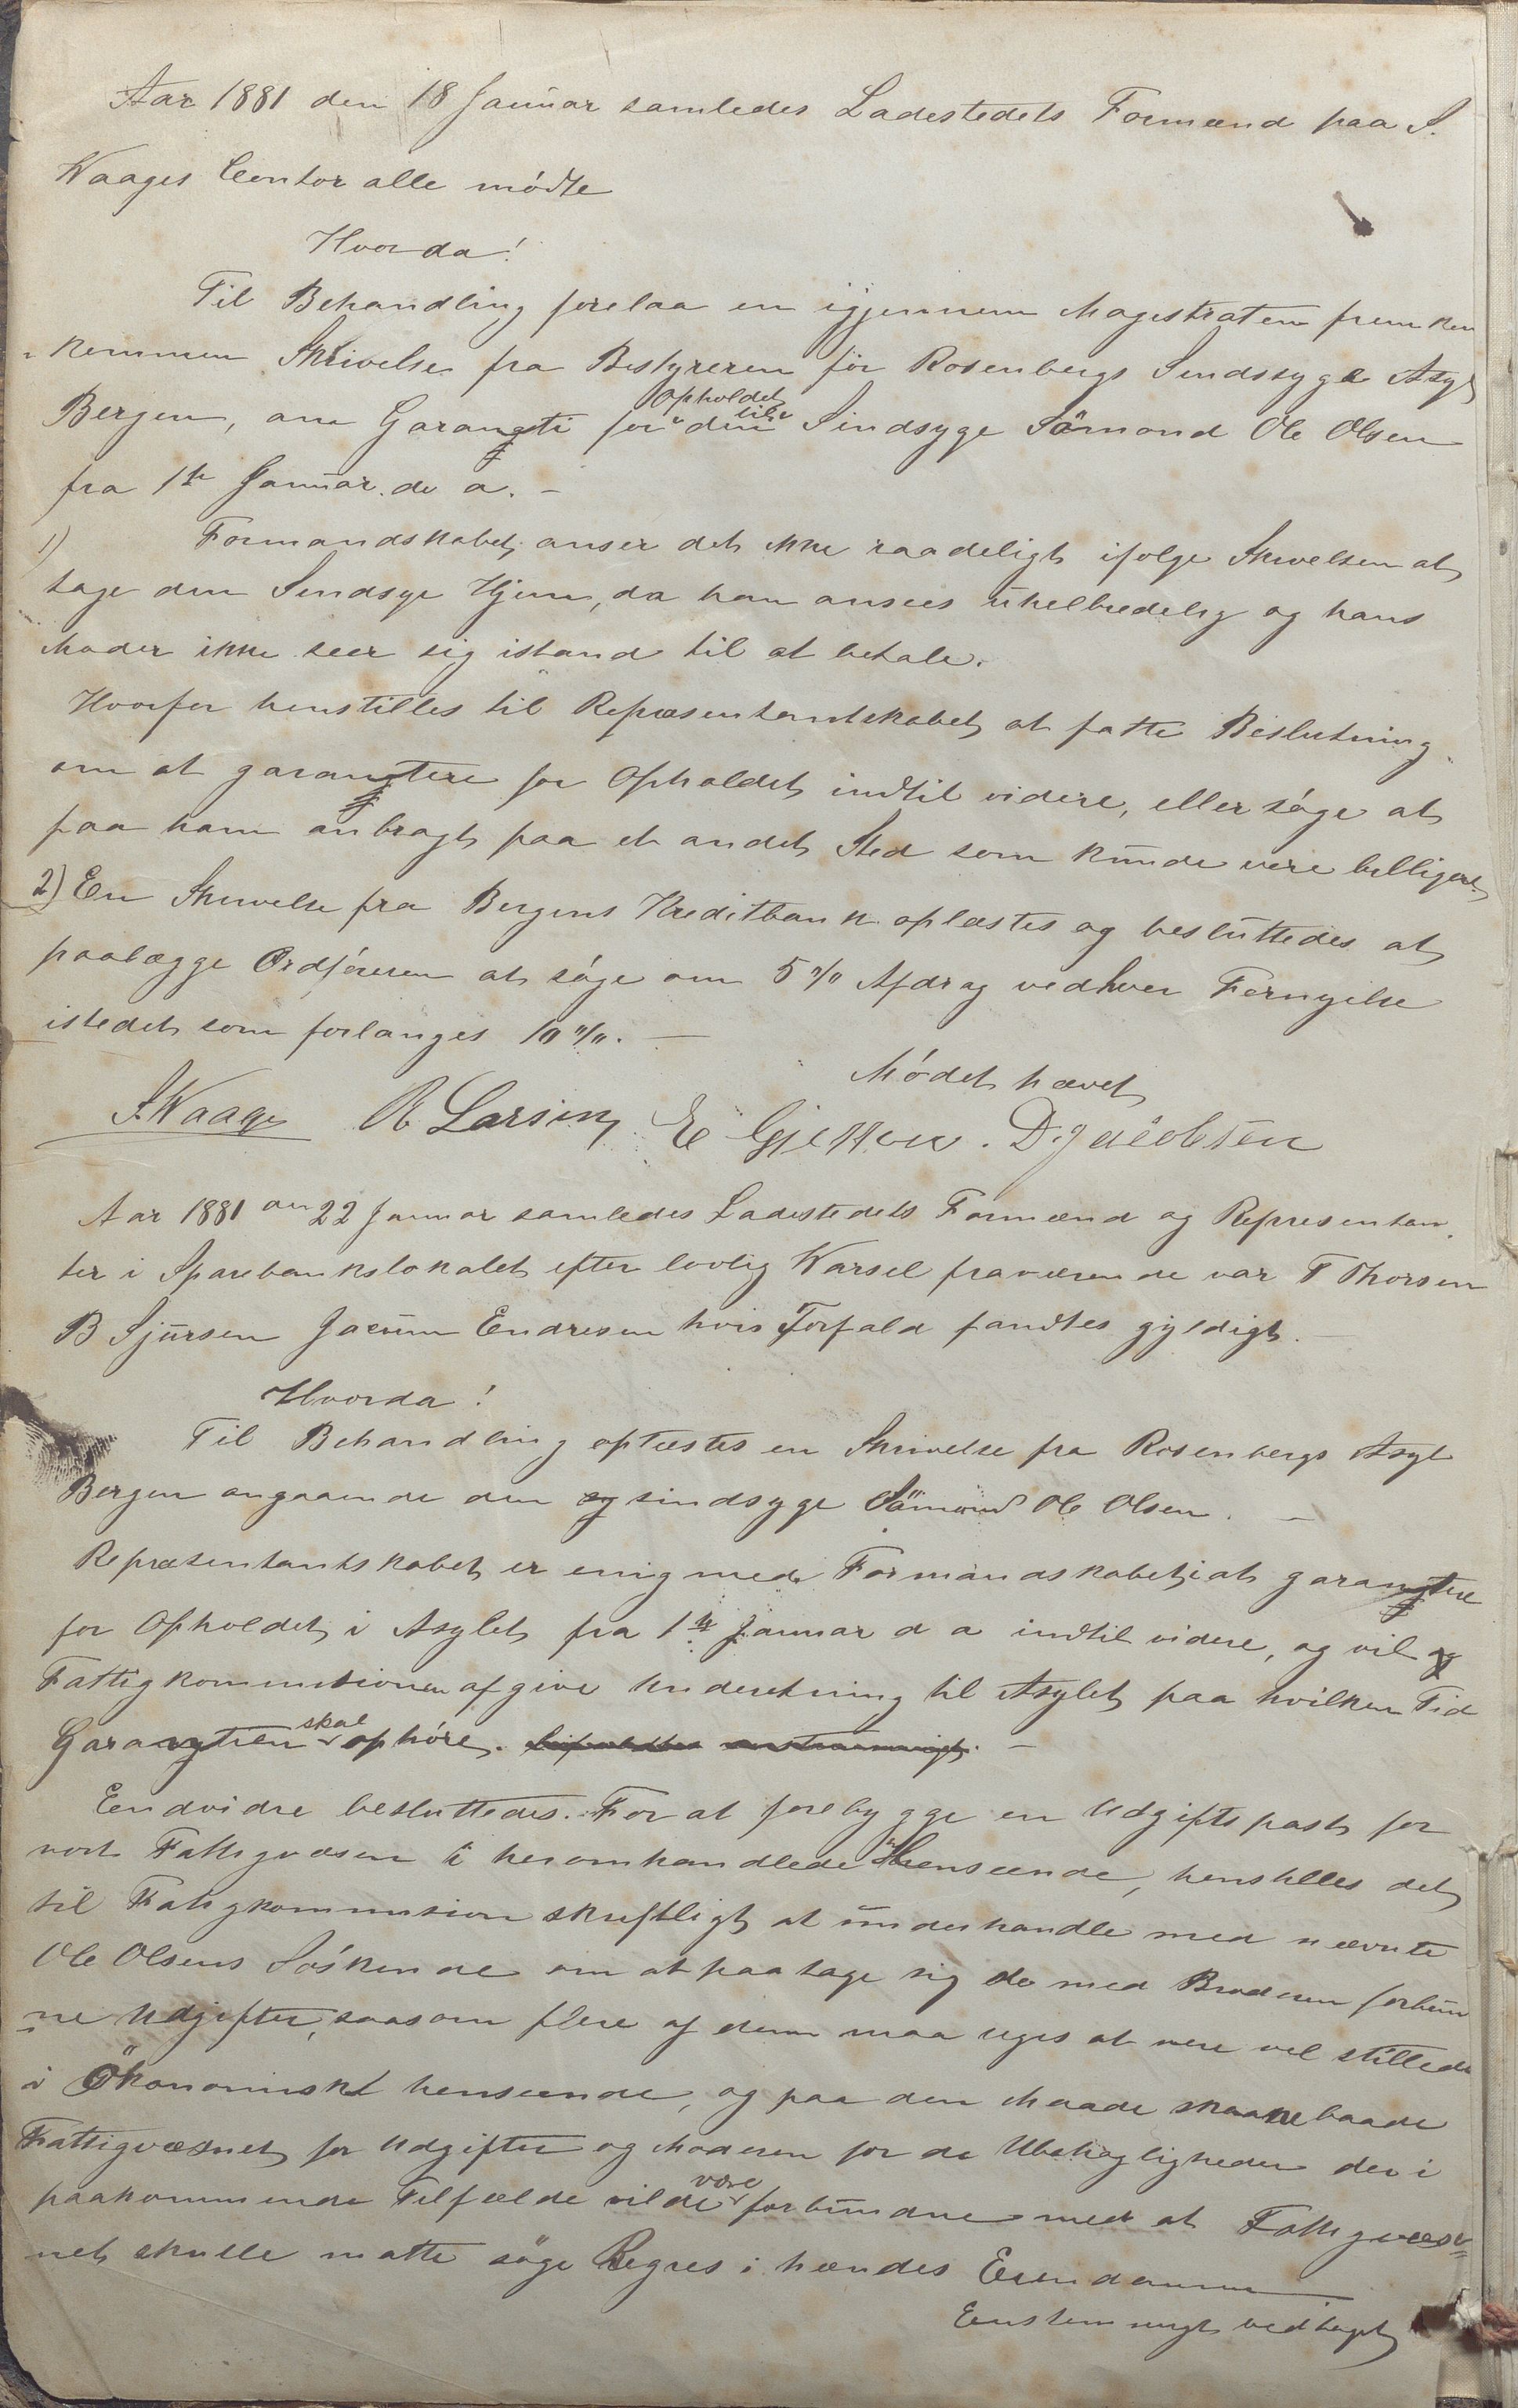 Aar 1881 den 18 Januar samledes Ladestedets Formænd paa S.
Waages Contor alle mödte
Hvorda!
Til Behandling forelaa en igjennem Magistraten frem
kommen Skrivelse fra Bestyreren for Rosenbergs Sindssyge Asyl
Opholdet
Bergen, om Garangti for den Sindsyge Sömand Ole Olsen
fra 1ste Januar. de a. –
1) Formandskabet anser det ikke raadeligt ifolge Skrivelsen at
tage den Sindsyge Hjem, da han ansees uhelbredelig og hans
Moder ikke seer sig istand til at betale.
Hvorfor henstilles til Repræsentantskabet at fatte Beslutning
om at garangtere for Opholdet indtil videre, eller söge at
faa ham anbragt paa et andet Sted som kunde være billigere
2) En Skrivelse fra Bergens Kreditbank oplæstes og besluttedes at
paalægge Ordföreren at söge om 5 % Afdrag ved hver Fornyelse
istedet som forlanges 10 %. –
Mödet hævet
S. Waage R Larsen E Gjetten. D. Jacobsen
Aar 1881 den 22 Januar samledes Ladestedets Formænd og Represen­tan
ter i Sparebankslokalet efter lovlig Varsel fraværende var T Thorsen
B Sjursen Jacum Endresen hvis Forfald fandtes gyldigt. –
Hvorda!
Til Behandling oplæstes en Skrivelse fra Rosenbergs Asyl
Bergen angaaende den sindsyge Sömand Ole Olsen. –
Repræsentantskabet er enig med Formandskabet i at garangtere
for Opholdet i Asylet fra 1ste Januar d a indtil videre, og vil
Fattigkommisionen afgive Underetning til Asylet paa hvilken Tid
Garangtien skal ophöre. –
Endvidre besluttedes. For at forebygge en Udgiftspost for
vort Fattigvæsen i heromhandlede Henseende, henstilles det
til Fatigkommision skriftligt at underhandle med nævnte
Ole Olsens Söskende om at paatage sig de med Broderen forbun
ne Udgifter, saasom flere af dem maa siges at være vel stillede
i Ökonomiskt henseende, og paa den Maade skaane baade
Fattigvæsnet for Udgifter og Moderen for de Ubehagligheder der i
paakommende Tilfælde vilde være forbundne med at Fattigvæs
net skulle maatte söge Regres i hendes Eiendomme
Eenstemmigt vedtaget